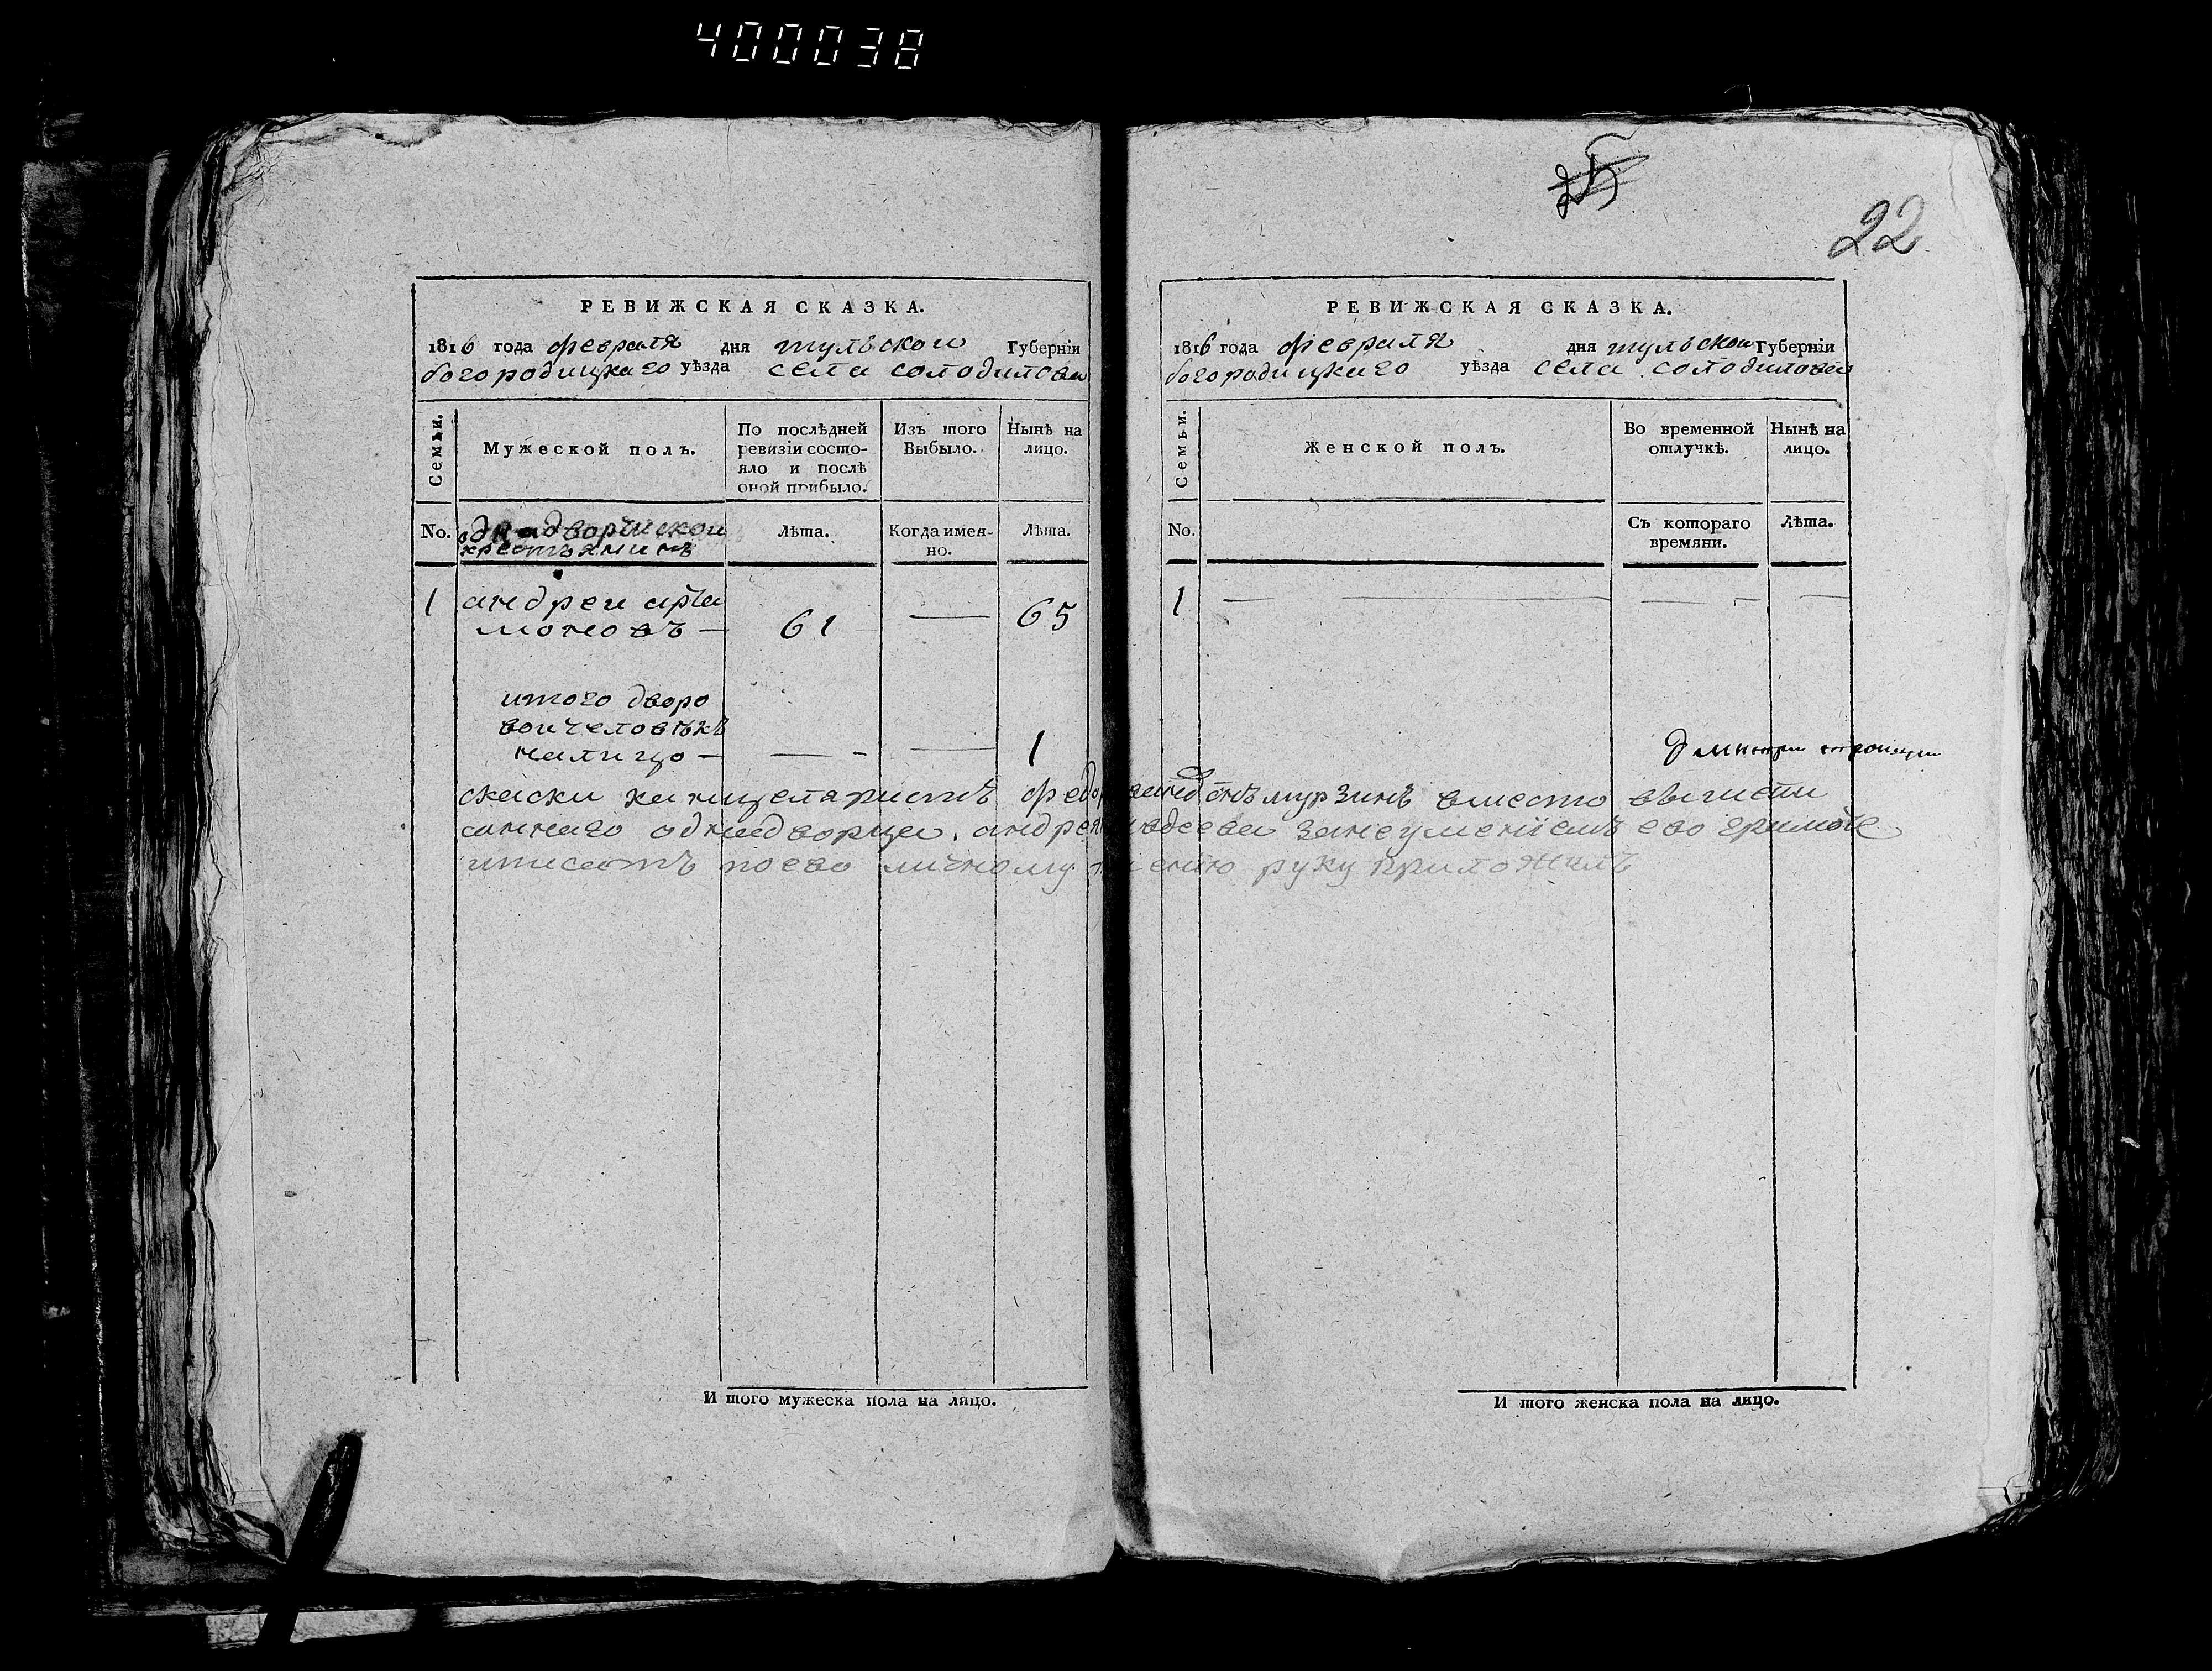 400038
25
22
РЕВИЖСКАЯ СКАЗКА.
1816 года февраля дня тульскои Губерніи
богородицкаго уѣзда села солодилова
Семьи.
Мужеской полъ.
По послѣдней ревизіи состо-
яло и послѣ
оной прибыло.
Изъ того
Выбыло.
Нынѣ на
лицо.
No.
однадворческои
крестьянинъ
Лѣта.
Когда имен-
но.
Лѣта.
1 андреи арта
моновъ — 61 — 65
итого дворо
вои человѣкъ
налицо — — — 1
РЕВИЖСКАЯ СКАЗКА.
1816 года февраля дня тульскои Губерніи
богородицкаго уѣзда села солодилова
Семьи.
Женской полъ.
Во временной
отлучкѣ.
Нынѣ на
лицо.
No.
Съ котораго
времяни.
Лѣта.
1 — — — —
дмитри
скаски канцеляристъ мурзинъ вместо
однадворца андрея авдеева занеуменіемъ ево грамоте
иписать поево личному руку приложилъ
И того мужеска пола на лицо.
И того женска пола на лицо.